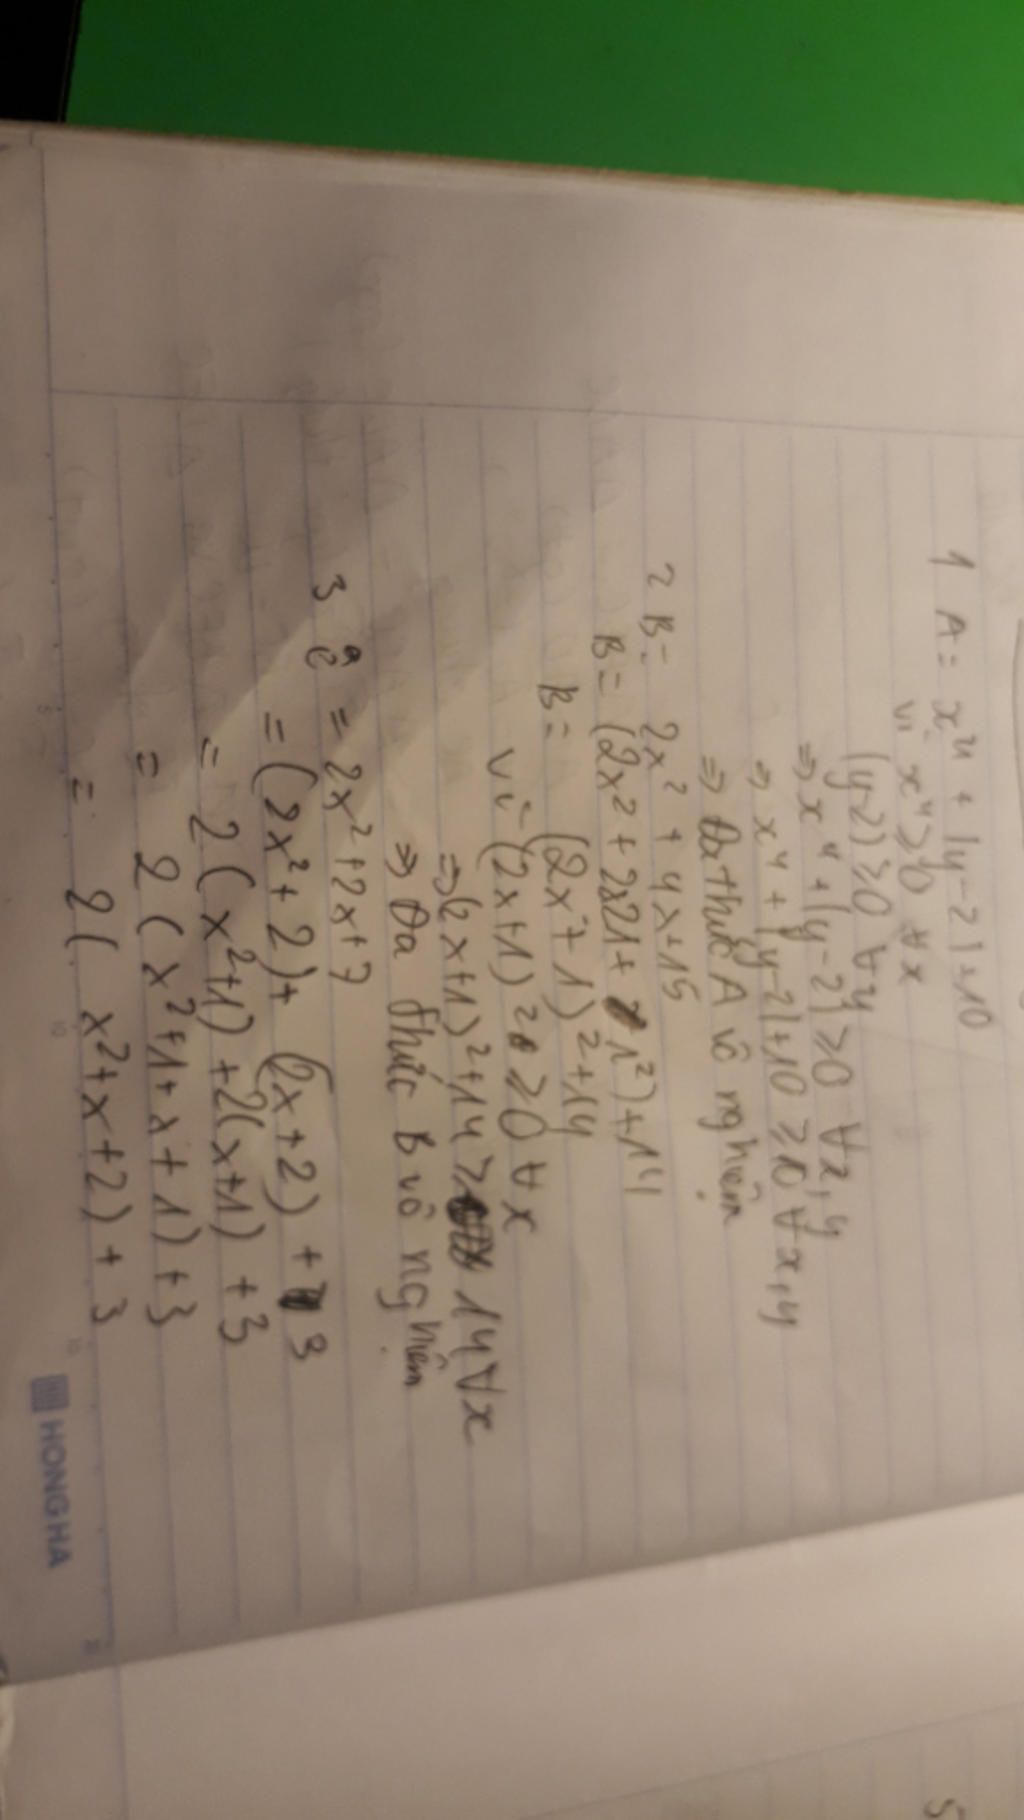 1 A = x⁴ + |y-2|+10
vì x⁴ ≥ 0 ∀ x
|y-2| ≥0 ∀y
⇒ x⁴ + |y-2| ≥0 ∀x,y
⇒ x⁴ + |y-2|+10 ≥10 ∀x,y
⇒ Đa thức A vô nghiệm
2 B = 2x² + 4x+15
B = (2x² + 2x21 + 1²)+14
B = (2x+1)²+14
vì (2x+1)² ≥0 ∀x
⇒ (2x+1)²+14 ≥ 14 ∀x
⇒ Đa thức B vô nghiệm
3 = 2x²+2x+7
= (2x²+2)+ (2x+2) + 3
= 2(x²+1) +2(x+1) +3
= 2(x²+1+x+1)+3
= 2(x²+x+2)+3
HONG HA
5
10
15
20
5